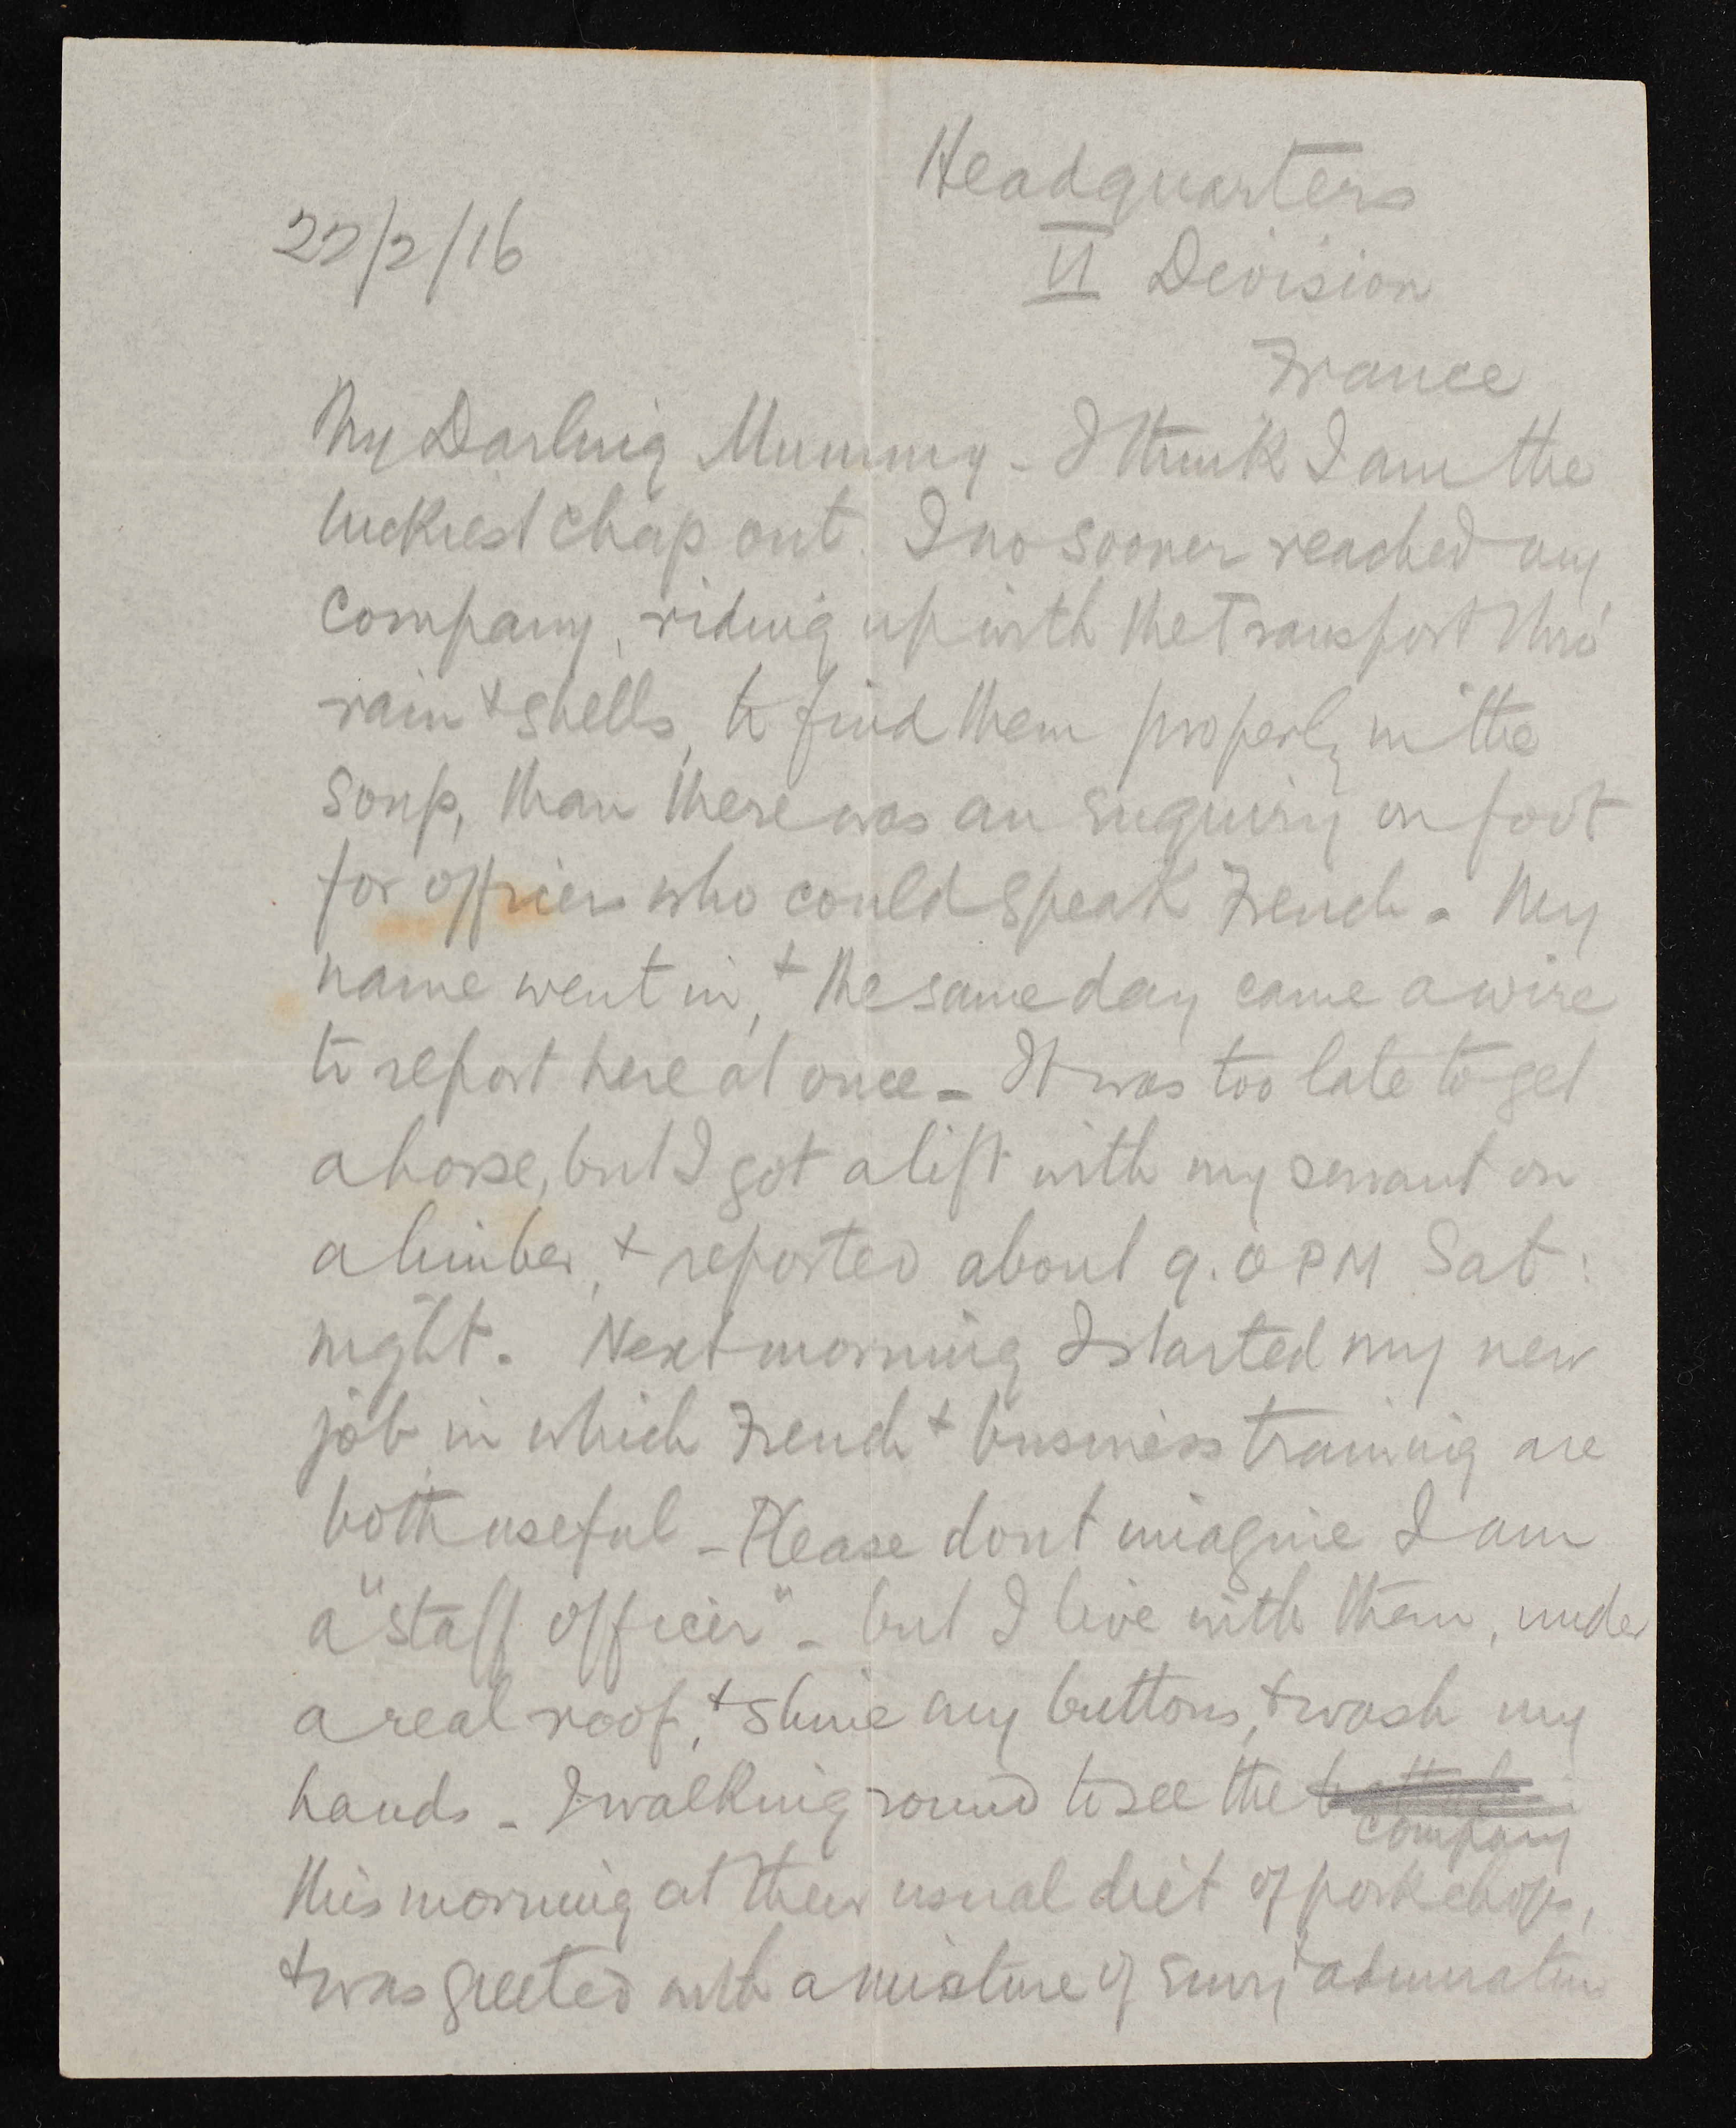 Headquarters
22/2/16
VI Division
France
My Darling Mummy - I think I am the
luckiest chap out. I no sooner reached my
company, riding up with the transport thro'
rain + shells, to find them properly in the
soup, than there was an enquiry on foot
for officers who could speak French - My
name went in, + the same day came a wire
to report here at once - It was too late to get
a horse, but I got a lift with my servant on
a limber, + reported about 9.0 PM Sat:
night. Next morning I started my new
job in which French + business training are
both useful - Please dont imagine I am
a "staff officer" - but I live with them, under
a real roof, + shine my buttons, + wash my
hands - I walking round to see the
company
this morning at their usual diet of pork chops,
+ was greeted with a mixture of envy + admiration